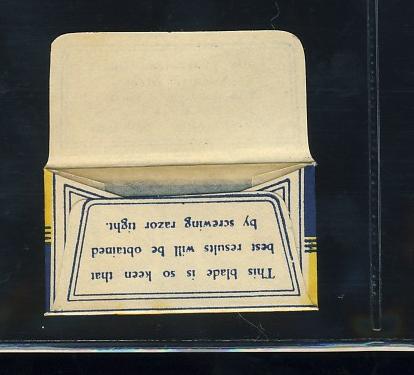 This blade is so keen that
best results will be obtained
by screwing razor tight.